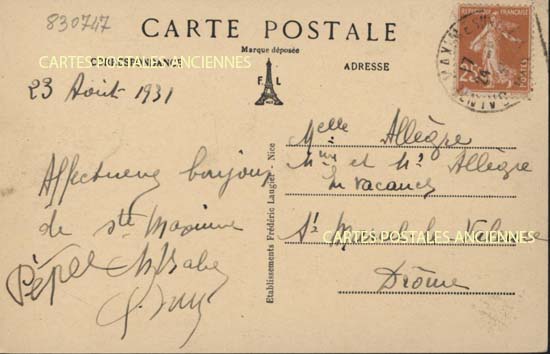 830747
CARTE POSTALE
Marque déposée
CORRESPONDANCE
F. L
ADRESSE
CARTES POSTALES ANCIENNES
REPUBLIQUE FRANÇAISE
25
POSTES
23 Août 1931
Affectueux bonjour
de Ste Maxime
Pépée
Etablissements Frédéric Laugier - Nice
Melle Allègre
Mme et Mr Allègre
En vacances
St Marcel les Valence
CARTES POSTALES ANCIENNES
Drôme